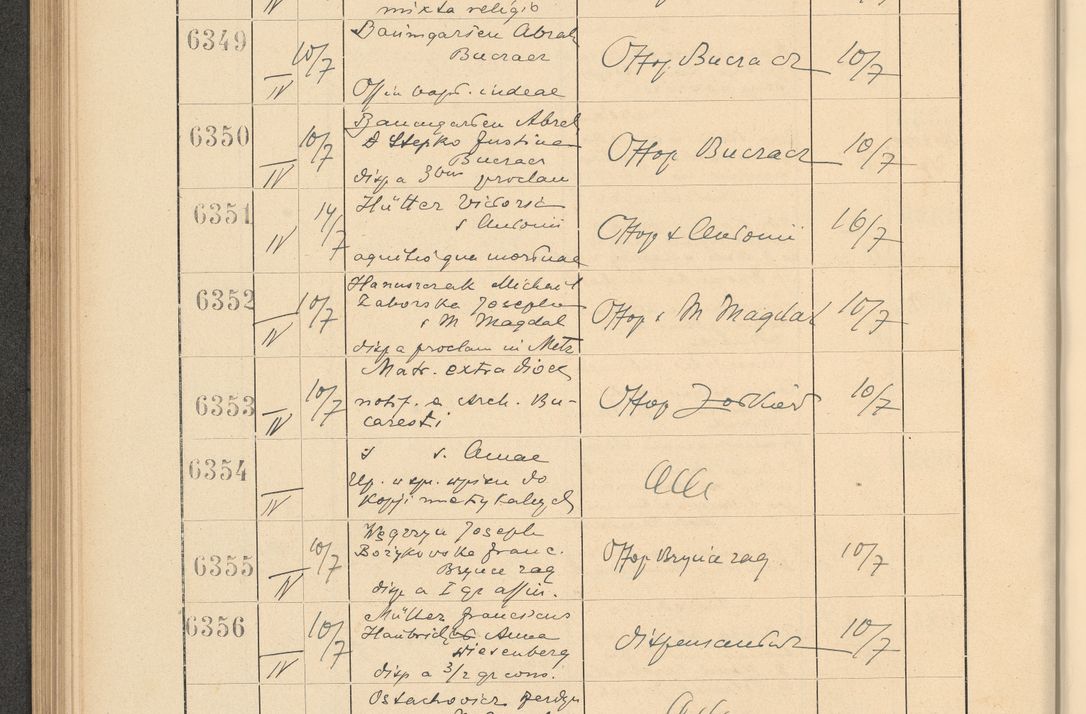 mixta religio
6349 IV 10/7 Baumgarten Abrah
Buczacz
Off in bapt. iudeae
Offop Buczacz 10/7
6350 IV 10/7 Baumgarten Abrah
Stepko Justina
Buczacz
disp a 3bus proclam
Offop Buczacz 10/7
6351 IV 14/7 Hütter Victoria
s Antonii
agnitio qua mortuae
Offop s Antonii 16/7
6352 IV 10/7 Hanuszczak Michael
Zaborska Josepha
s M Magdal
disp a proclam in Metz
Offop s M Magdal 10/7
6353 IV 10/7 Matr. extra dioec
notif. a Arch. Bu-
caresti
Offop 10/7
6354 IV s. Annae
Up. w spr. wpisu do
kopji metrykalnych
Alle
6355 IV 10/7 Węgrzyn Joseph
Bożykowska Franc.
Brynce zag
disp a I gr affin.
Offop Brynce zag 10/7
6356 IV 10/7 Müller Franciscus
Anna
Wiesenberg
disp a 3/2 gr cons.
dispensantur 10/7
Ostachowicz Ferdyn